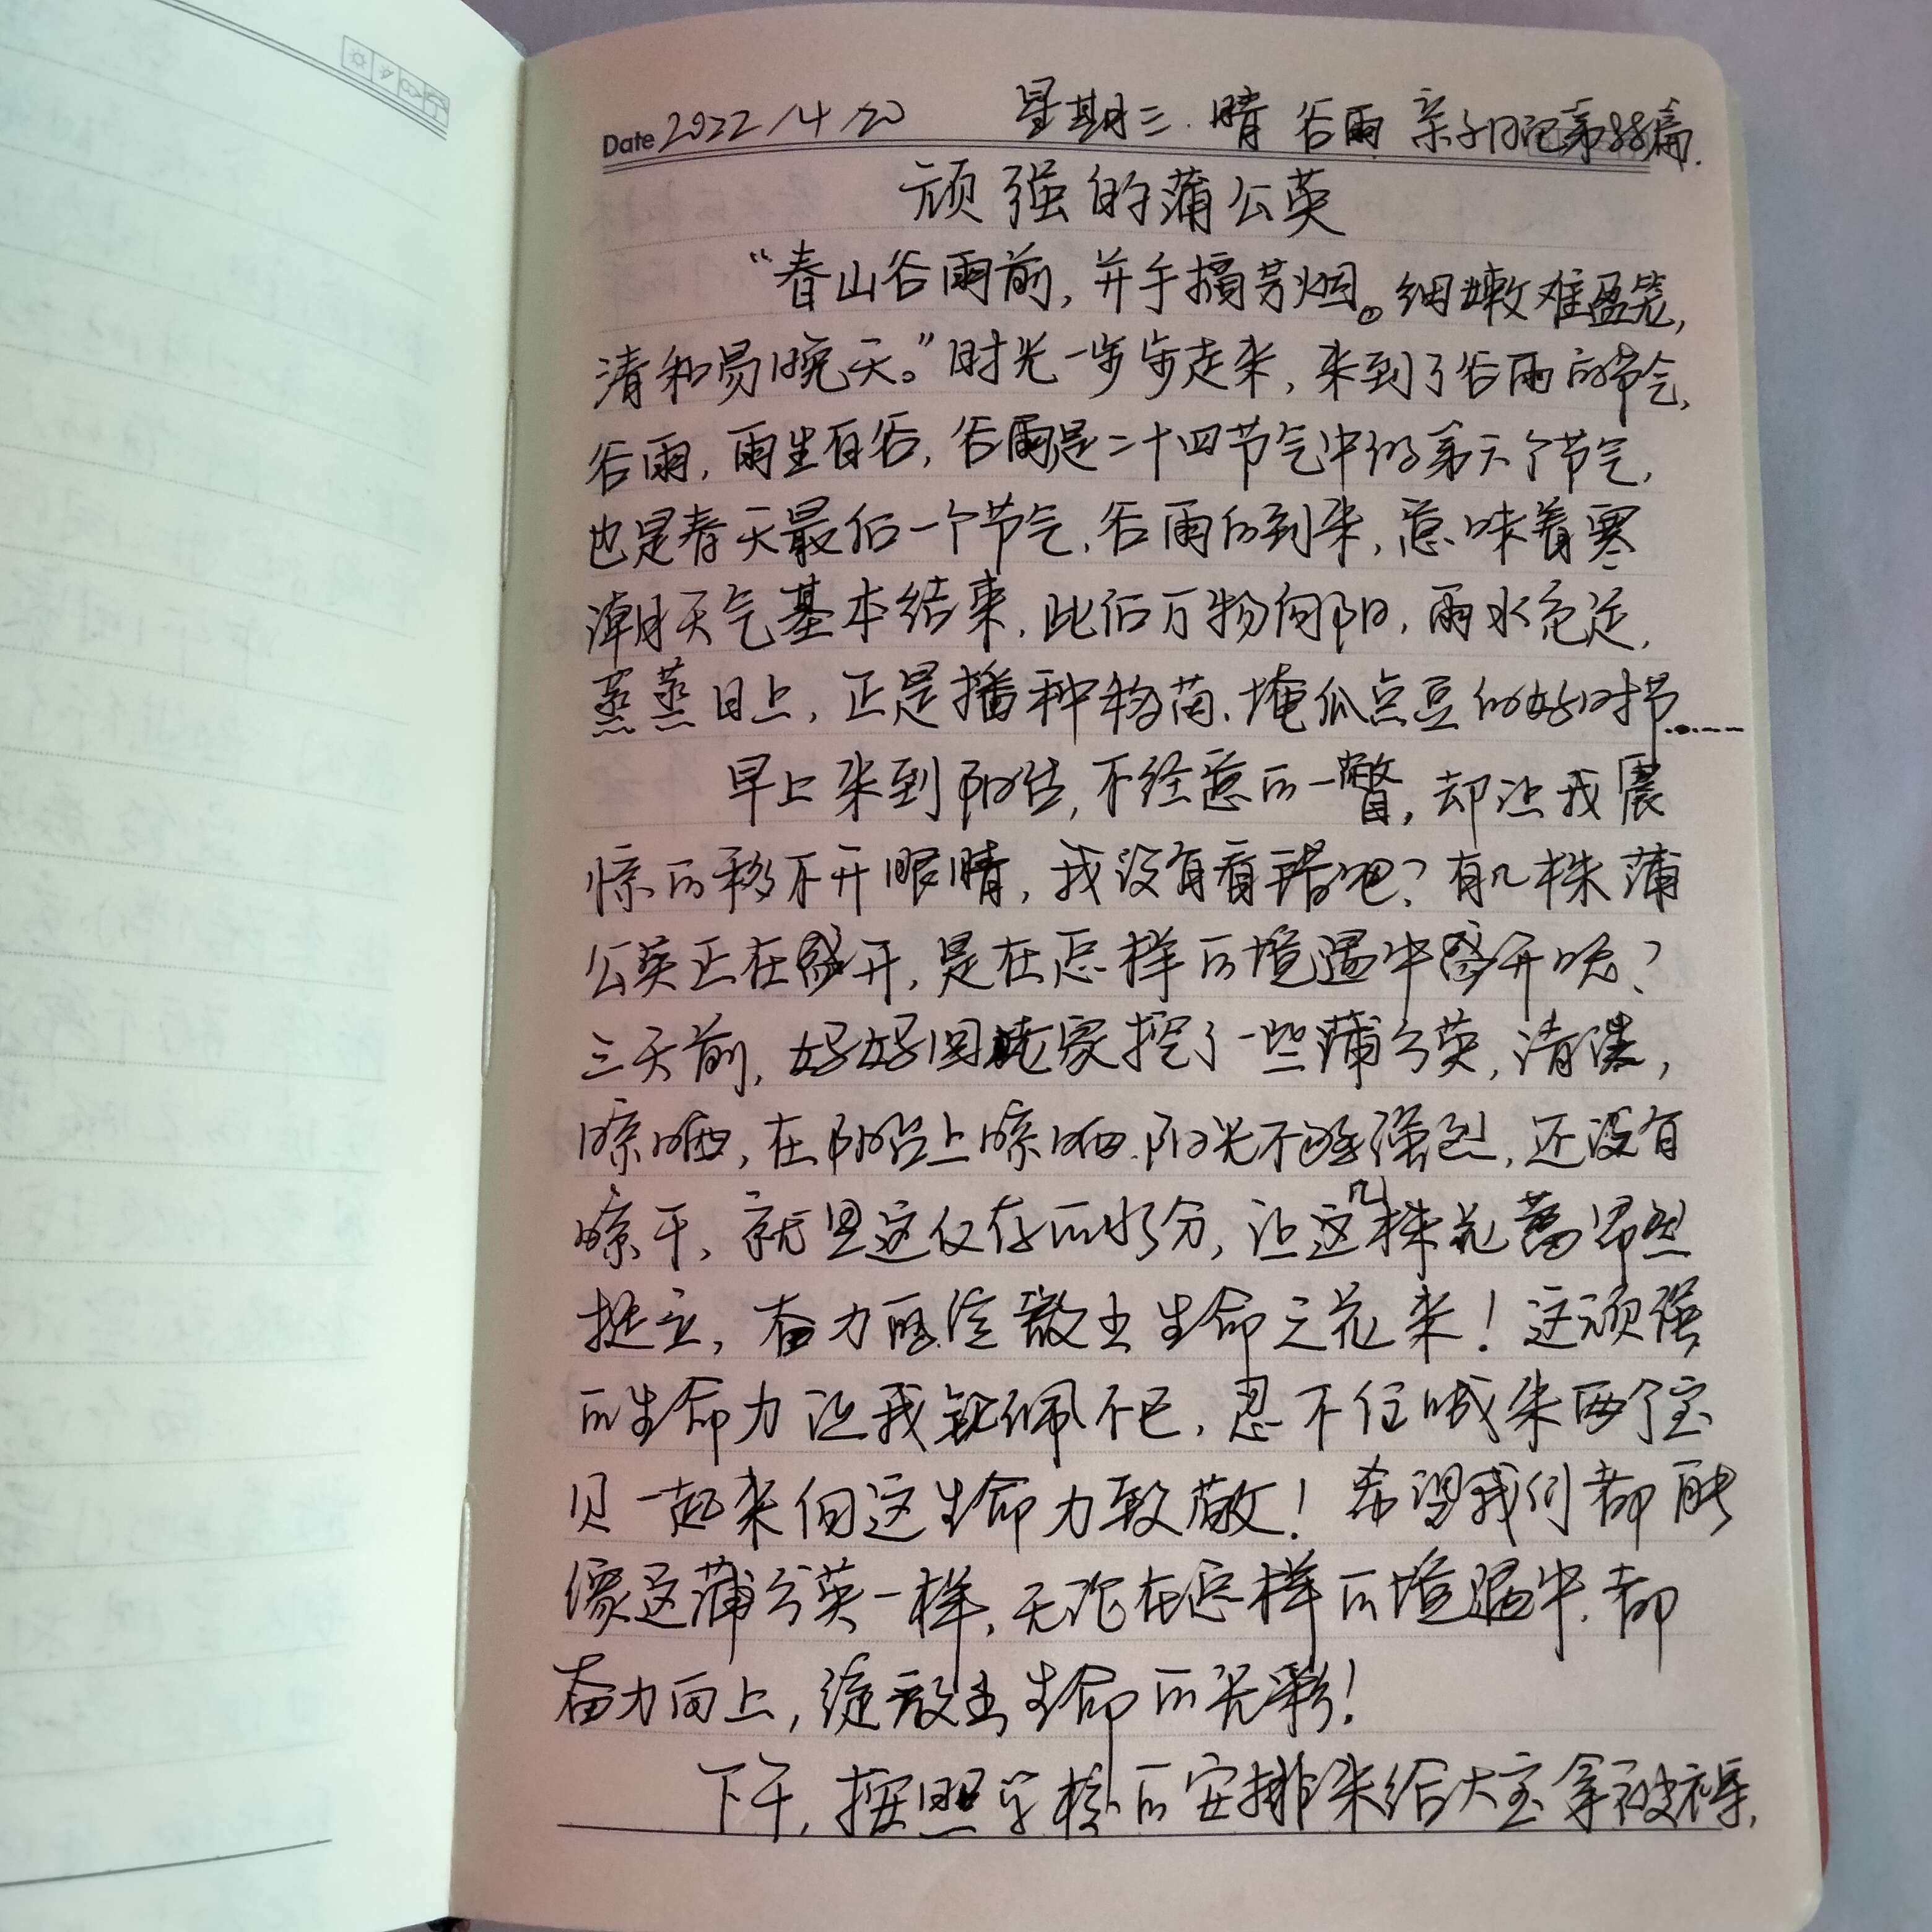 Date 2022/4/20 星期三. 晴 谷雨 亲子日记第88篇.
顽强的蒲公英
“春山谷雨前,并手摘芳烟。细嫩难盈笼,
清和易晚天。”时光一步步走来,来到了谷雨的节气,
谷雨,雨生百谷,谷雨是二十四节气中的第六个节气,
也是春天最后一个节气,谷雨的到来,意味着寒
潮天气基本结束,此后万物向阳,雨水充足,
蒸蒸日上,正是播种移苗、埯瓜点豆的好时节……
早上来到阳台,不经意的一瞥,却让我震
惊的移不开眼睛,我没有看错吧?有几株蒲
公英正在盛开,是在怎样的境遇中盛开呢?
三天前,好好回老家挖了一些蒲公英,清洗,
晾晒,在阳台上晾晒.阳光不够强烈,还没有
晾干,就是这仅存的水分,让这几株花蕾昂然
挺立,奋力的绽放出生命之花来!这顽强
的生命力让我钦佩不已,忍不住喊来两个宝
贝一起来向这生命力致敬!希望我们都能
像这蒲公英一样,无论在怎样的境遇中,都
奋力向上,绽放出生命的光彩!
下午,按照学校的安排来给大宝拿被褥,